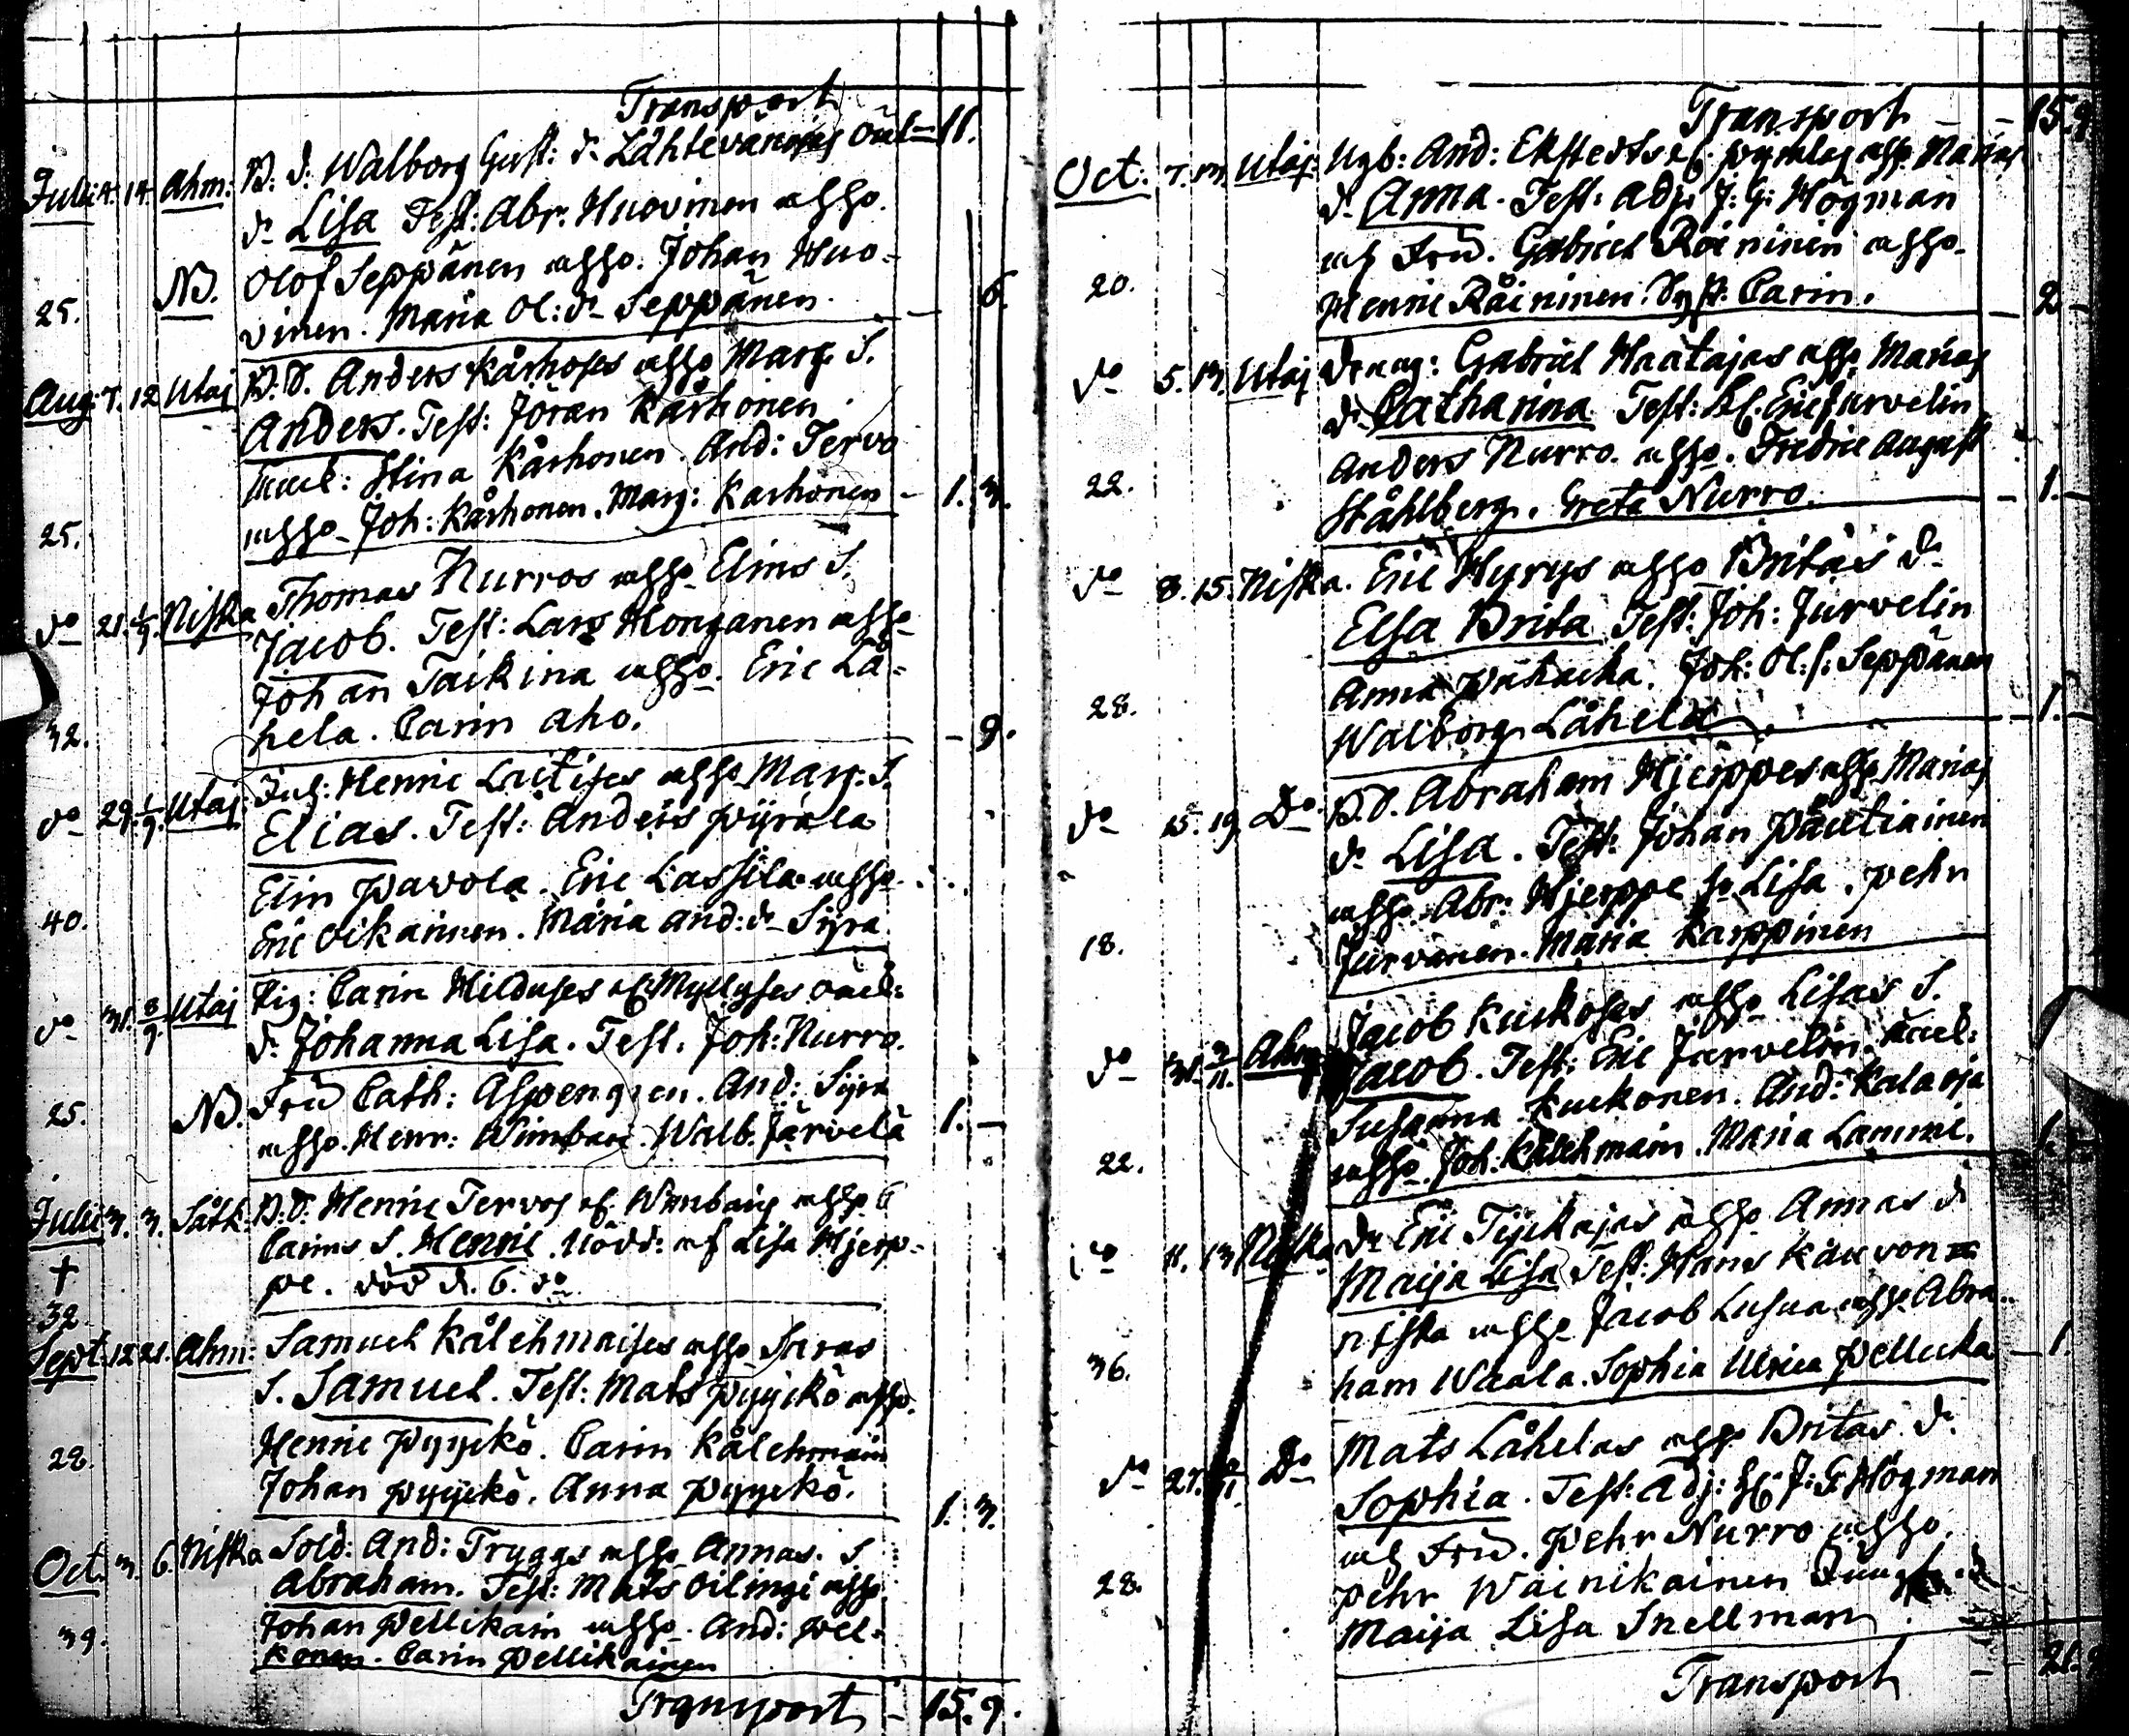 Transport
Juli 4. 14. Ahm: B. d. Walborg Gust: d. Låhtevänojas Oäl= 11.
d. Lisa Test: Abr. Huovinen u hho.
NB. Olof Seppänen u hho. Johan Huo=
25. vinen. Maria Ol: d. Seppänen. 6.
Aug: 7. 12 Utaj B. d. Anders Kårhoses u hho Marg. S.
Anders. Test: Jöran Kårhonen
Stina Kårhonen. And: Tervo
25. u hho. Joh: Kårhonen. Marg: Karhonen 1. 3.
do 21. 1/9. Niska Thomas Nurros u hho Elins S.
Jacob. Test: Lars Monganen u hho
Johan Taikina u hho. Eric Lå=
32. hela. Carin Aho. 9.
do 29. 1/9. Utaj. Inh: Henric Laitises u hho Marg. S.
Elias. Test: Anders Pyrälä
Elin Pavola. Eric Lassila u hho
40. Eric Oikarinen. Maria And: d. Syra.
do 31. 8/9. Utaj Pig: Carin Hilduses Myllyses oäcl:
d. Johanna Lisa. Test. Joh: Nurro.
25. NB. Fru Cath: Aspengren. And: Syra
u hho. Henr: Wimbari. Walb. Järvelä 1. –
Juli 3. 3. Såtk: B. d. Henric Tervos Wimbaris u hho
† Carins S. Henric. Nöddt: af Lisa Hjerp=
32. pe. död d. 6. do.
Sept: 12 21. Ahm: Samuel Kålehmaises u hho Saras
S. Samuel. Test: Mats Pyyckö u hho.
28. Henric Pyyckö. Carin Kålehmain
Johan Pyyckö. Anna Pyyckö. 1. 3.
Oct. 3. 6. Niska Sold: And: Tryggs u hho Annas. S.
Abraham. Test: Mats Oilingi u hho
39. Johan Pellikain u hho. And: Pel=
konen. Carin Pellikainen
Transport 15. 9.
Transport 15. 9
Oct: 7. 13. Utaj: Ngb: And: Ekstedts u hho Marias
d. Anna. Test: Adj. J: G: Högman
20. m Fru. Gabriel Räininen u hho.
Henric Räininen. Syst. Carin. 2
do 5. 13. Utaj Dräng: Gabriel Haatajas u hho Marias
d. Catharina Test: Kl. Eric Jurvelin
Anders Nurro. u hho. Fredric August
22. Ståhlberg. Greta Nurro. 1.
do 8. 15. Niska. Eric Hyrys u hho Britas d.
Elsa Brita Test: Joh: Jurvelin
28. Anna Joh: Ol: s: Seppänen
Walborg Låhela 1.
do 15. 19. Do. B. d. Abraham Hjerppes u hho Marias
d. Lisa. Test: Johan Päätiainen
u hho. Abr: Hjerppe Lisa. Pehr
18. Jurvanen. Maria Karppinen
do 31. 3/11. Ahm Jacob Kuckoses u hho Lisas S.
Jacob. Test: Eric Jurvelin
Susanna Kuckonen. And: Kalaoja
22. u hho. Joh: Kålehmain. Maria Lammi. 1.
do 11. 13 Niska Eric Tyickajas u hho Annas d
Maija Lisa Test: Hans Kauvon
niska u hho Jacob Lusua u hho. Abra=
36. ham Waala. Sophia Ulrica Pellicka 1.
do 27. Do Mats Låhelas u hho Britas. d.
Sophia. Test: Adj: J: G: Högman
m Fru. Pehr Nurro u hho.
28. Pehr Wäinikainen
Maija Lisa Snellman
Transport 21. 9